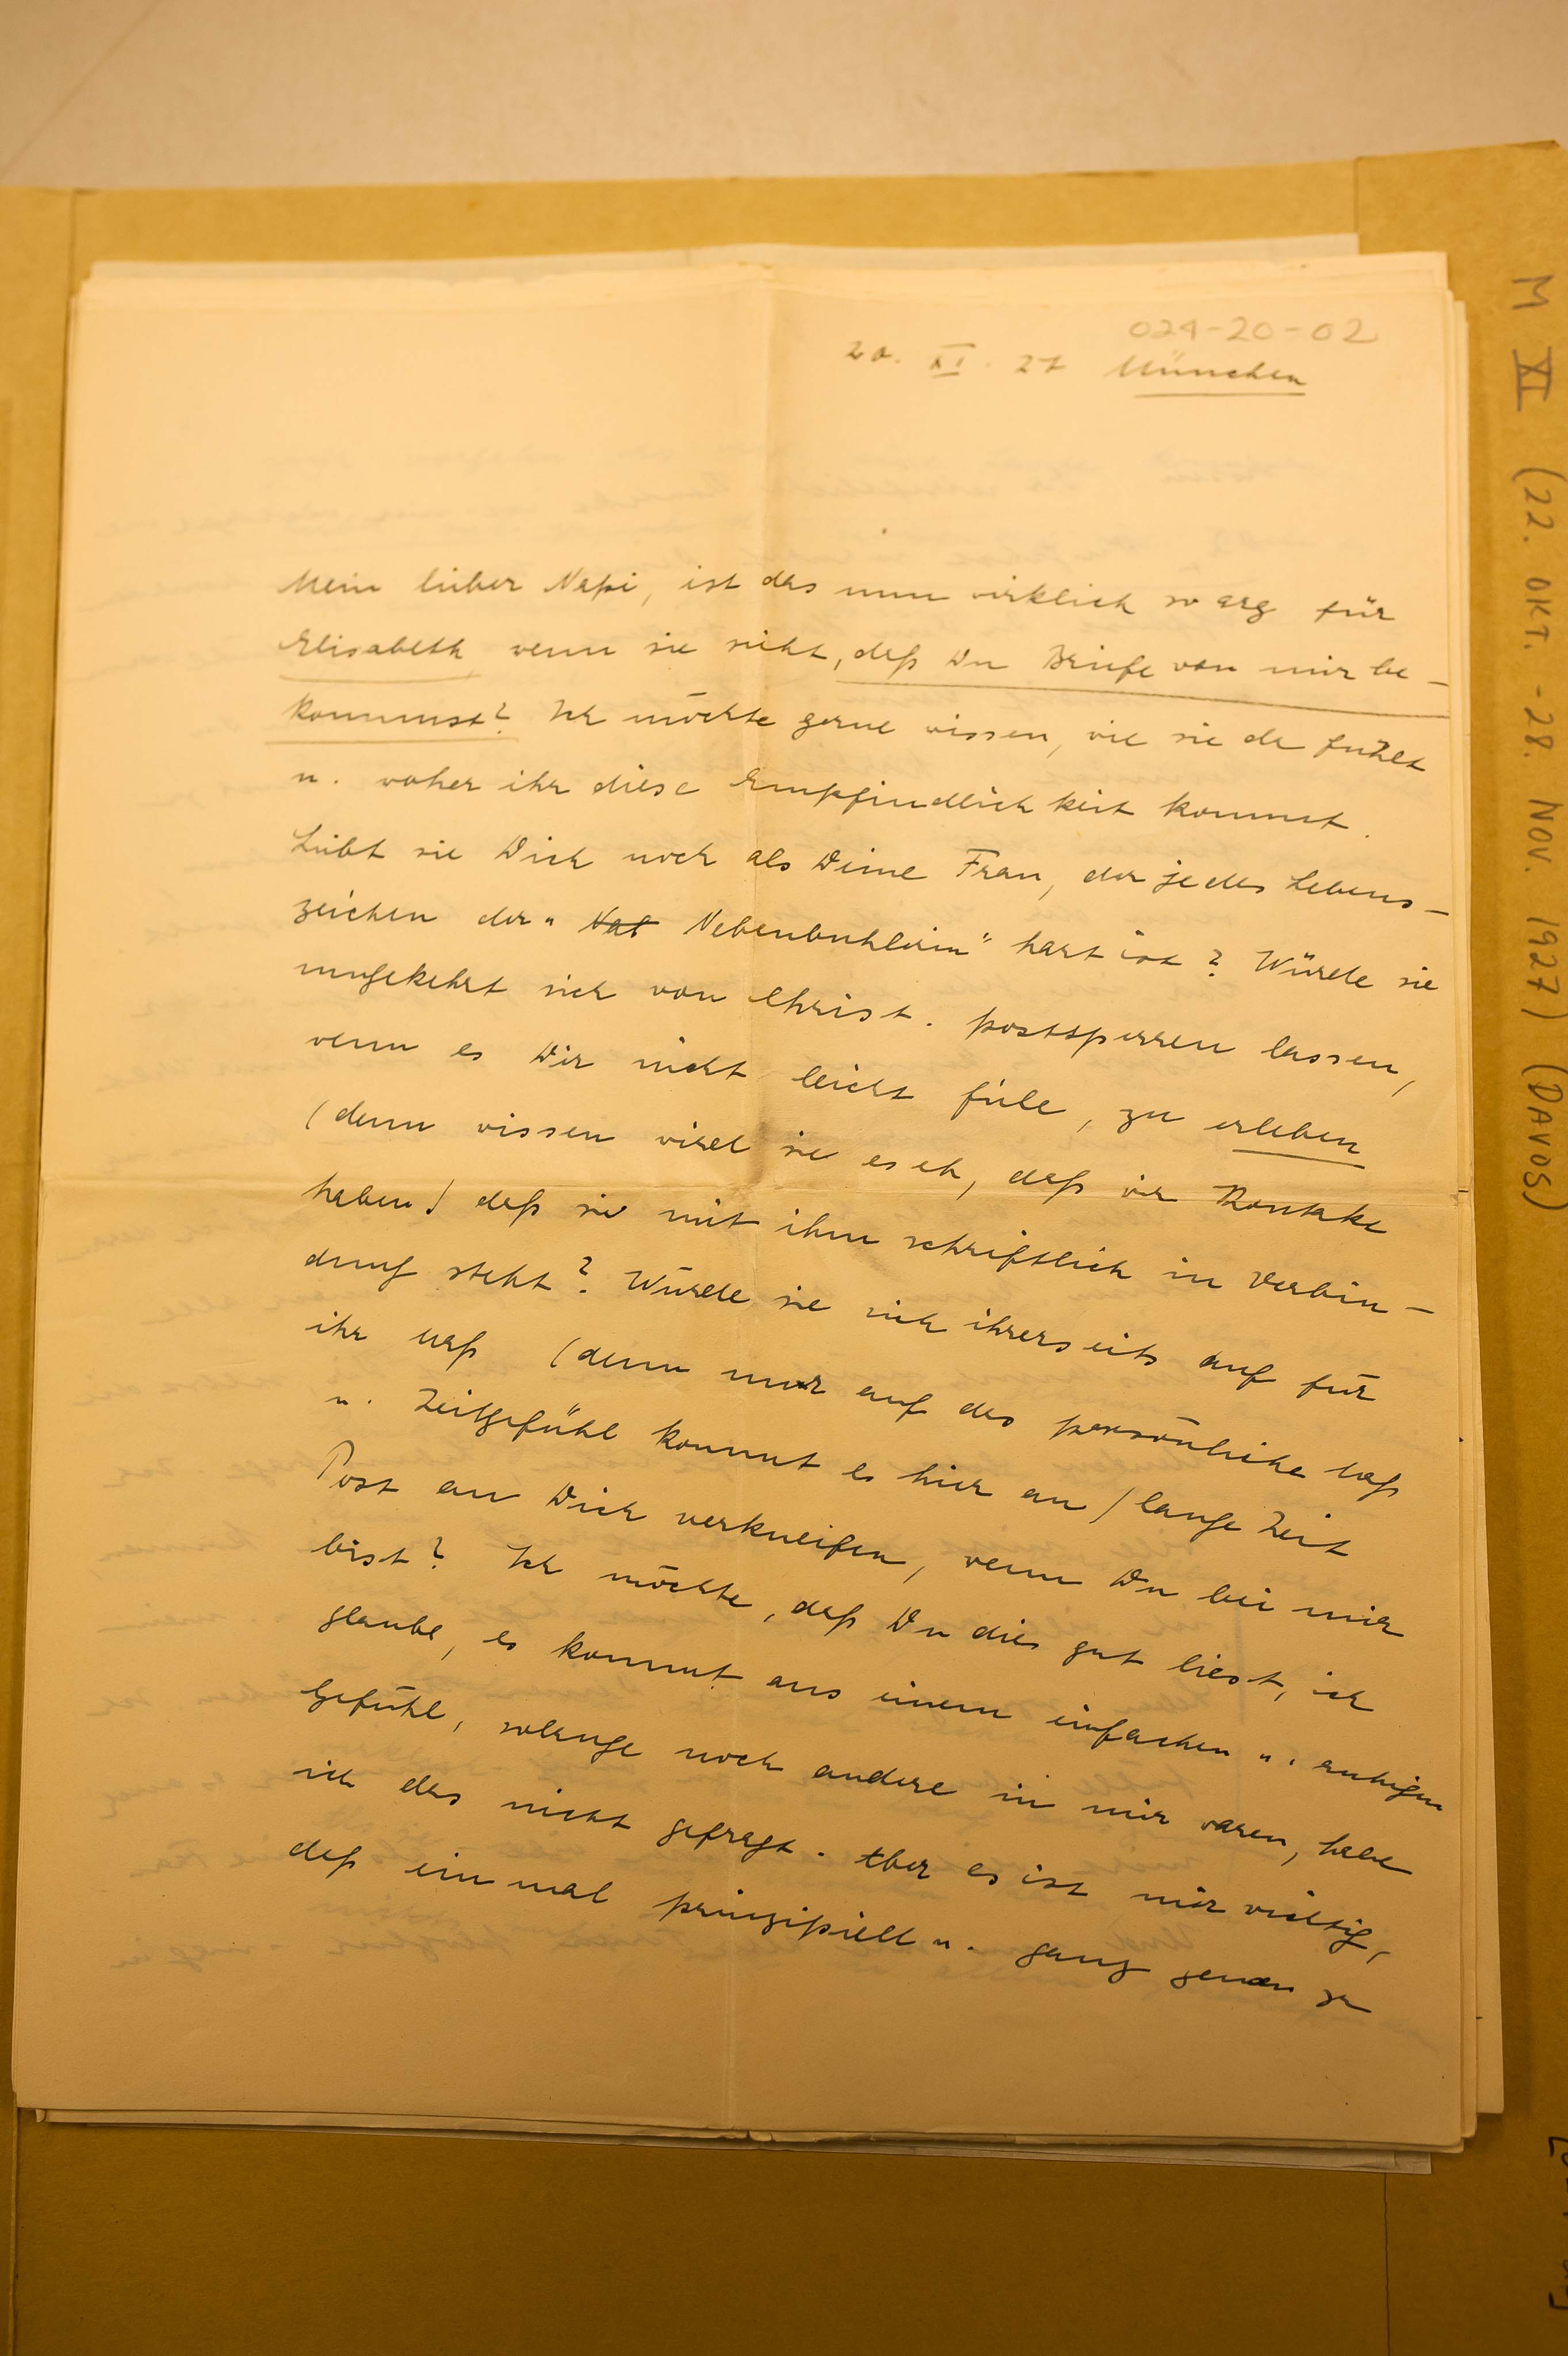 024-20-02
20. XI. 27 München
Mein lieber Napi, ist das nun wirklich so arg für
Elisabeth wenn sie sieht, daß Du Briefe von mir be-
kommst? Ich möchte gerne wissen, wie sie da fühlt
u. woher ihr diese Empfindlichkeit kommt.
Liebt sie Dich noch als Deine Frau, der jedes Lebens-
zeichen der " Neb Nebenbuhlerin" hart ist? Würde sie
umgekehrt sich von Christ. postsperren lassen,
wenn es Dir nicht leicht fiele, zu erleben
(denn wissen wirst sie es eh, daß wir Kontakt
haben) daß sie mit ihm schriftlich in Verbin-
dung steht? Würde sie sich ihrerseits auf für
ihr Maß (denn nur auf das persönliche Maß
u. Zeitgefühl kommt es hier an) lange Zeit
Post an Dich verkneifen, wenn Du bei mir
bist? Ich möchte, daß Du dies gut liest, ich
glaube, es kommt aus einem einfachen u. ruhigen
Gefühl, solange noch andere in mir waren, habe
ich das nicht gefragt. Aber es ist mir wichtig,
daß einmal prinzipiell u. ganz genau zu
M XI (22. OKT. - 28. NOV. 1927) (DAVOS)